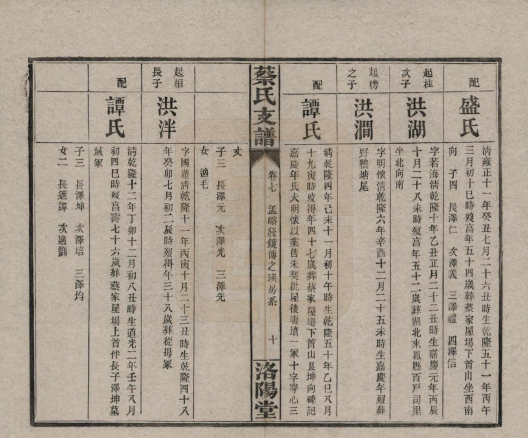 配
盛氏
清雍正十一年癸丑七月二十六丑時生乾隆五十一年丙午
三月初十巳時歿高年五十四歲葬蔡家屋場下首山坐西南
向 子四 長澤仁 次澤義 三澤禮 四澤信
起桂
次子
洪湖
字若海清乾隆十年乙丑正月二十二丑時生嘉慶元年丙辰
十月二十八未時歿高年五十二歲葬湖北來鳳縣百戶司里
坐北向南
起榜
之子
洪澗
字明懷清乾隆六年辛酉十二月二十五未時生嘉慶年歿葬
野鴨塘尾
配
譚氏
清乾隆四年己未十一月初十午時生乾隆五十年乙巳八月
十九寅時歿得年四十七歲葬蔡家屋場下首山艮坤向碑記
嘉慶年氏大明懷以葉舊未娶批屋後妻墳一冢十字穿心三
丈
蔡氏支譜
卷七
孟峪發鏡傳之瑛房系
十
洛陽堂
子三 長澤元 次澤光 三澤先
女 適毛
起相
長子
洪泮
字國壱清乾隆十一年丙寅十月二十三丑時生乾隆四十八
年癸卯七月初二辰時歿得年三十八歲葬從母冢
配
譚氏
清乾隆十二年丁卯十二月初八丑時生道光二年壬午八月
初四巳時歿高壽七十六歲葬蔡家屋場上首伴長子澤坤墓
域冢
子三 長澤坤 次澤培 三澤均
女二 長適譚 次適劉